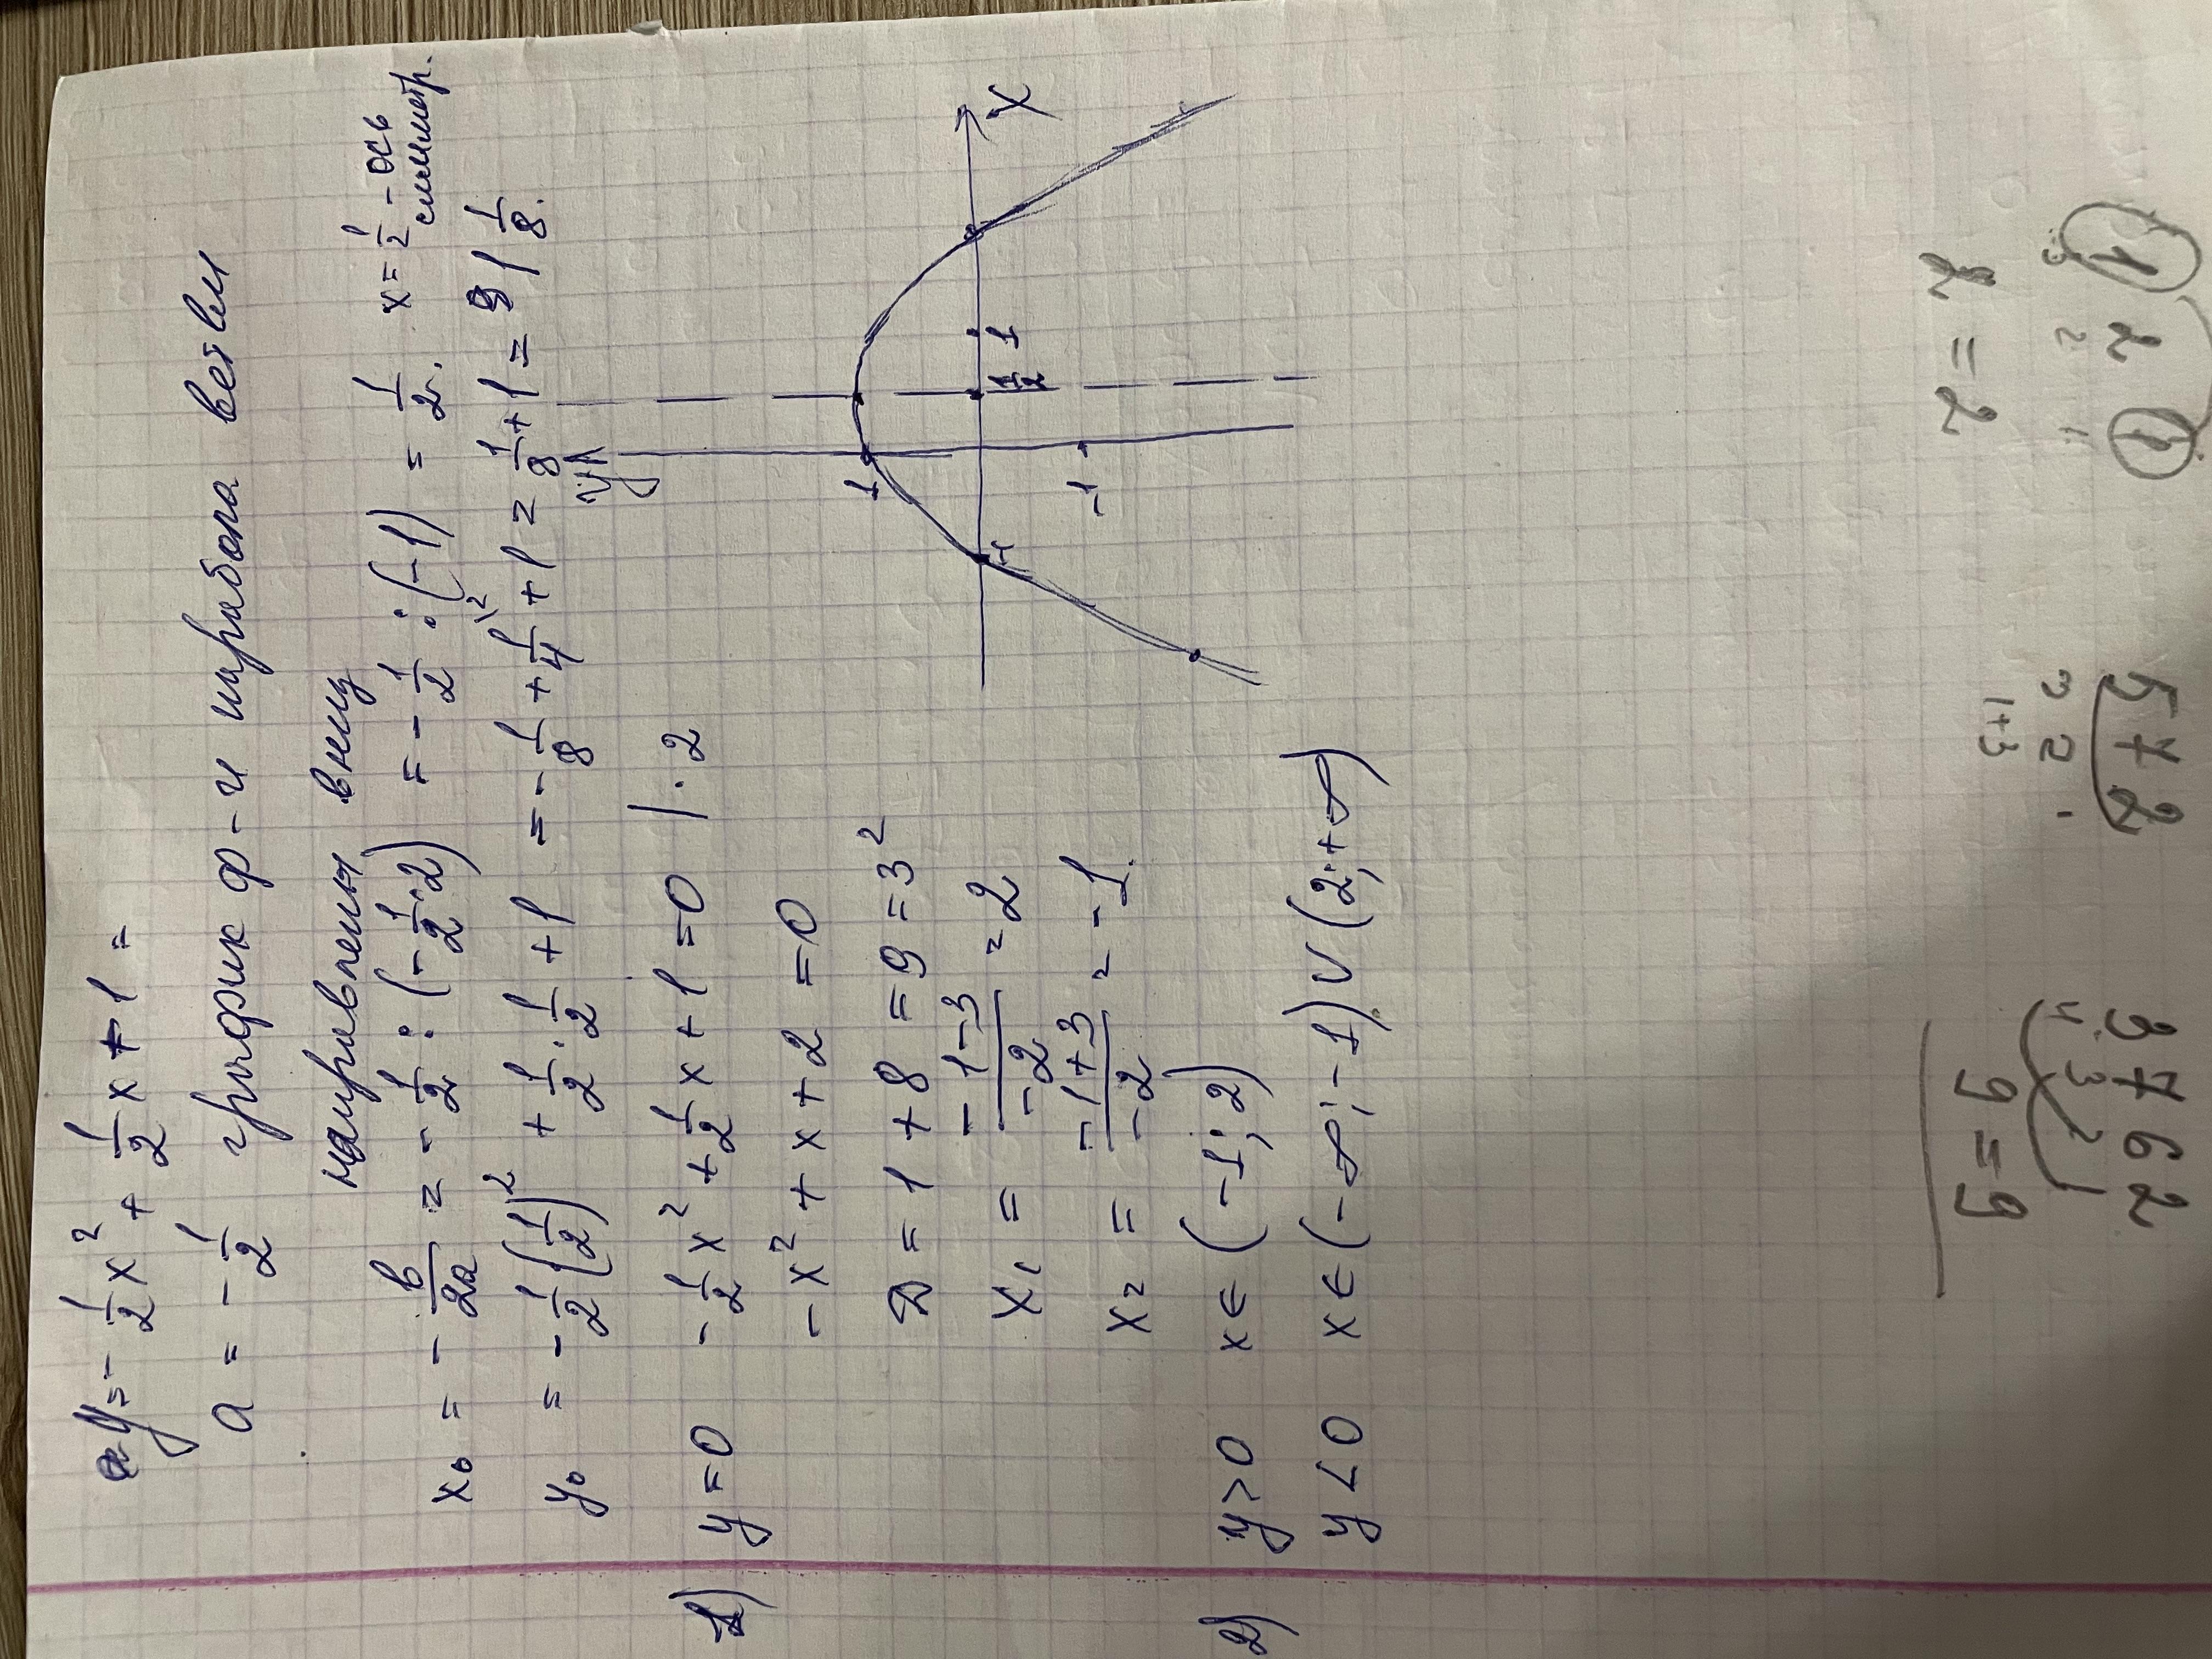 y = -1/2 x² + 1/2 x + 1 =
a = -1/2 график ф-и парабола ветви
направлены вниз
x₀ = -в/2a = -1/2 : (-1/2 · 2) = -1/2 : (-1) = 1/2. x = 1/2 - ось симметр.
y₀ = -1/2 (1/2)² + 1/2 · 1/2 + 1 = -1/8 + 1/4 \² + 1 = 1/8 + 1 = 1 1/8.
1) y = 0 -1/2 x² + 1/2 x + 1 = 0 | · 2
-x² + x + 2 = 0
D = 1 + 8 = 9 = 3²
x₁ = (-1-3)/(-2) = 2
x₂ = (-1+3)/(-2) = -1.
2) y > 0 x ∈ (-1; 2)
y < 0 x ∈ (-∞; -1) ∪ (2; +∞)
y
x
1
-1
1/2
1
-1
3 7 6 2
4 3 2
9 = 9
5 7 2
3 2 1
1+3
1 2 1
2 = 2